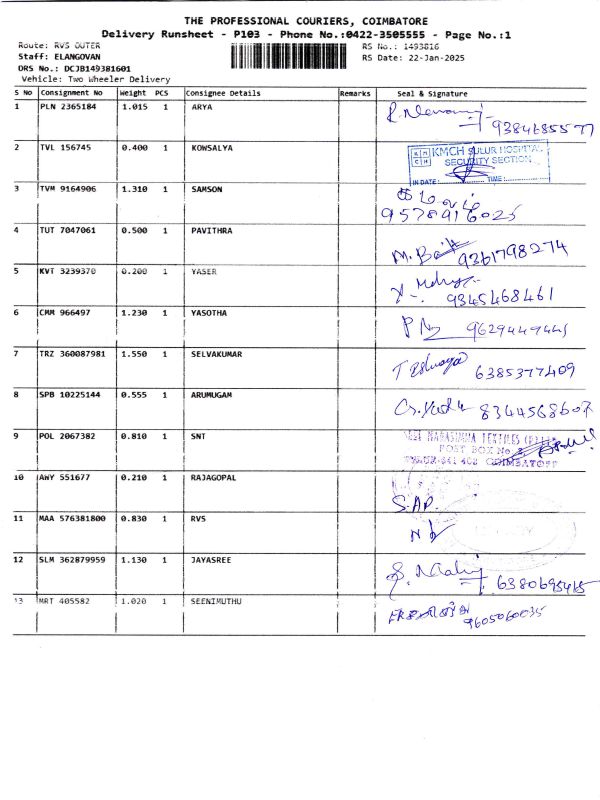 THE PROFESSIONAL COURIERS, COIMBATORE
Delivery Runsheet - P103 - Phone No.:0422-3505555 - Page No.:1
Route: RVS OUTER RS No.: 1493816
Staff: ELANGOVAN RS Date: 22-Jan-2025
DRS No.: DCJB149381601
Vehicle: Two Wheeler Delivery
S No Consignment No Weight PCS Consignee Details Remarks Seal & Signature
1 PLN 2365184 1.015 1 ARYA
9384685577
2 TVL 156745 0.400 1 KOWSALYA
KMCH SULUR HOSPITAL
SECURITY SECTION
IN DATE: TIME:
3 TVM 9164906 1.310 1 SAMSON
9578916025
4 TUT 7047061 0.500 1 PAVITHRA
9361798274
5 KVT 3239370 0.200 1 YASER
9345468461
6 CMM 966497 1.230 1 YASOTHA
9629449445
7 TRZ 360087981 1.550 1 SELVAKUMAR
6385377409
8 SPB 10225144 0.555 1 ARUMUGAM
8344568607
9 POL 2067382 0.810 1 SNT
NARASIMMA TEXTILES (P)
POST BOX No
641 402 COIMBATORE
10 AWY 551677 0.210 1 RAJAGOPAL
11 MAA 576381800 0.830 1 RVS
12 SLM 362879959 1.130 1 JAYASREE
6380695415
13 MRT 405582 1.020 1 SEENIMUTHU
9605060035